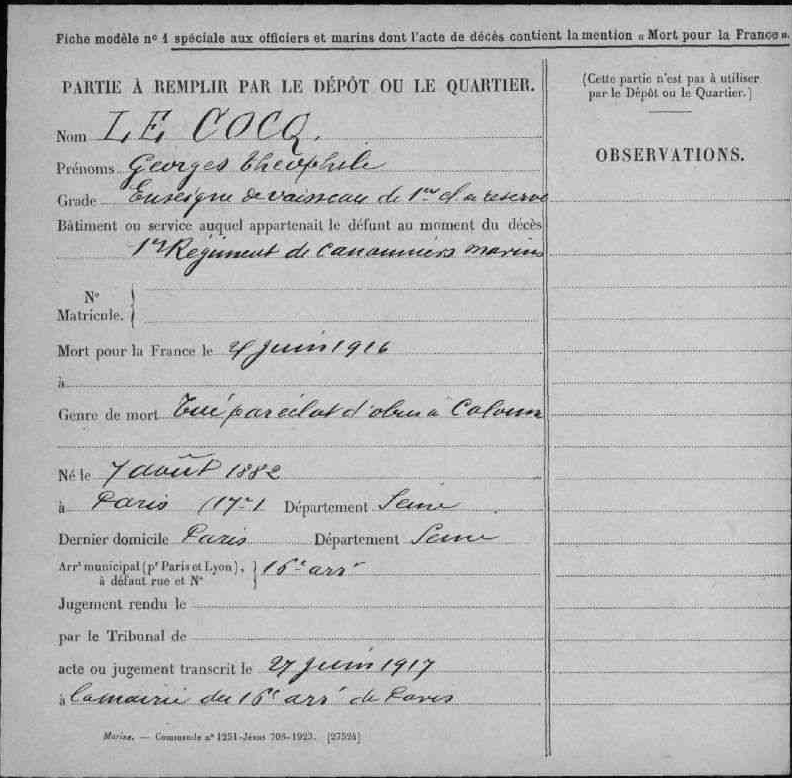 Fiche modèle nº 1 spéciale aux officiers et marins dont l'acte de décès contient la mention « Mort pour la France ».
PARTIE À REMPLIR PAR LE DÉPÔT OU LE QUARTIER.
Nom LE COCQ.
Prénoms Georges théophile
Grade Enseigne de vaisseau de 1re cl. de réserve
Bâtiment ou service auquel appartenait le défunt au moment du décès
1er Régiment de Canonniers marins
Nº
Matricule.
Mort pour la France le Juin 1916
à
Genre de mort Tué par éclat d'obus à
Né le 7 août 1882
à Paris (17e) Département Seine
Dernier domicile Paris Département Seine
Arrt municipal (pr Paris et Lyon), 16e arrt
à défaut rue et Nº
Jugement rendu le
par le Tribunal de
acte ou jugement transcrit le 27 Juin 1917
à la mairie du 16e arrt de Paris
Marine. — Commande nº 1251-Jésus 708-1923. [27524]
(Cette partie n'est pas à utiliser
par le Dépôt ou le Quartier.)
OBSERVATIONS.